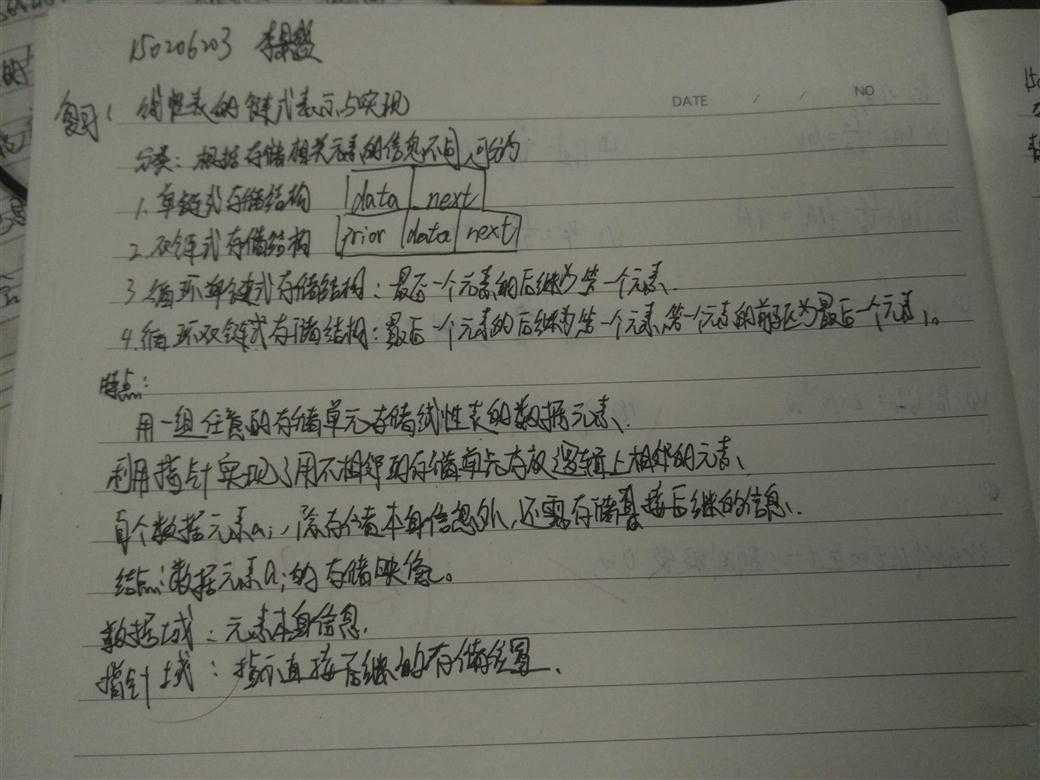 150206203 李
DATE / / NO
复习: 线性表的链式表示与实现
分类: 根据存储相关元素的信息不同,可分为
1. 单链式存储结构 data next
2. 双链式存储结构 prior data next
3. 循环单链式存储结构: 最后一个元素的后继为第一个元素.
4. 循环双链式存储结构: 最后一个元素的后继为第一个元素,第一个元素的前驱为最后一个元素。
特点:
用一组任意的存储单元存储线性表的数据元素.
利用指针实现了用不相邻的存储单元存放逻辑上相邻的元素、
每个数据元素ai, 除存储本身信息外, 还需存储直接后继的信息.
结点: 数据元素ai的存储映像。
数据域: 元素本身信息.
指针域: 指示直接后继的存储位置.